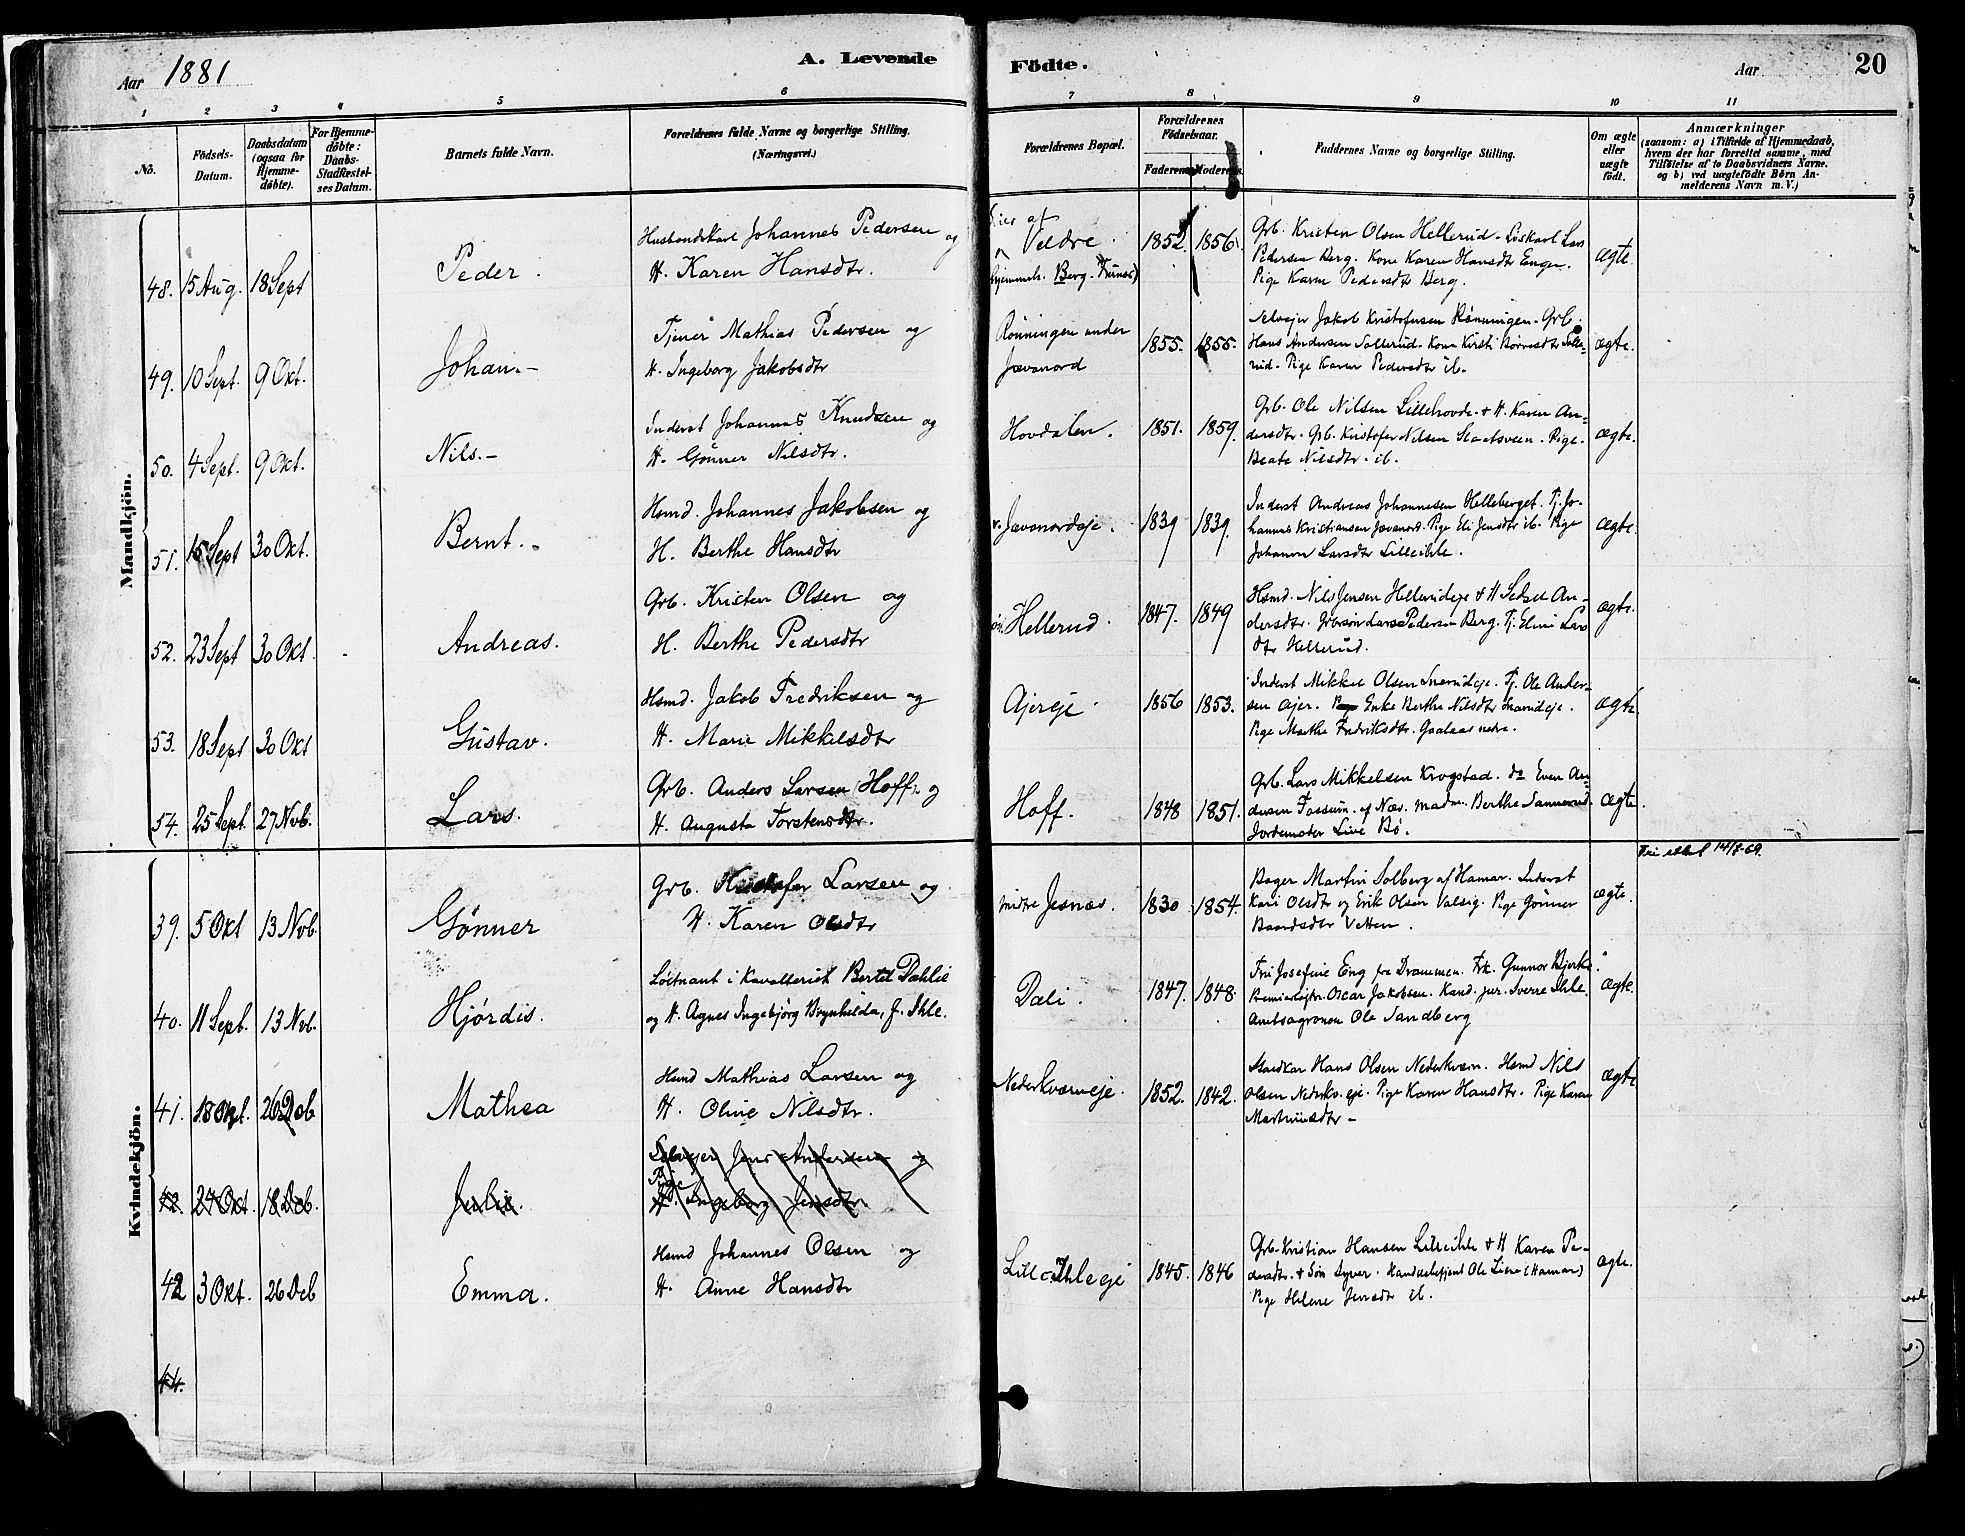 Aar 1881
A. Levende
Födte.
Aar
20
1 2 3 4 5 6 7 8 9 10 11
No.
Födsels-
Datum.
Daabsdatum
(ogsaa for
Hjemme-
döbte).
For Hjemme-
döbte:
Daabs-
Stadfæstel-
ses Datum.
Barnets fulde Navn.
Forældrenes fulde Navne og borgerlige Stilling.
(Næringsvei.)
Forældrenes Bopæl.
Forældrenes
Födselsaar.
Faderens Moderens
Faddernes Navne og borgerlige Stilling.
Om ægte
eller
uægte
födt.
Anmærkninger
(saasom: a) i Tilfælde af Hjemmedaab,
hvem der har forrettet samme, med
Tilföielse af to Daabsvidners Navne.
og b) ved uægtefödte Börn An-
melderens Navn m.V.)
Mandkjön.
48. 15 Aug. 18 Sept
Peder.
Husbondskarl Johannes Pedersen og
H. Karen Hansdtr.
Eier af
Veldre.
(hjemmeh. Berg. Furnes)
1852 1856
Grb. Kristen Olsen Hellerud. Löskarl Lars
Pedersen Berg. Kone Karen Hansdtr Enger.
Pige Karen Pedersdtr Berg.
ægte.
49. 10 Sept. 9 Okt.
Johan.-
Tjener Mathias Pedersen og
H. Ingeborg Jakobsdtr
Rönningen under
Jævanord
1855. 1855.
Selvejer Jakob Kristofersen Rönningen. Grb.
Hans Andersen Sollerud. Kone Kristi Børresdtr Solle-
rud. Pige Karen Pedersdtr ib.
ægte.
50. 4 Sept. 9 Okt.
Nils.-
Inderst Johannes Knudsen og
H. Gönner Nilsdtr.
Hovdalen.
1851. 1859.
Grb. Ole Nilsen Lillehovde + H. Karen An-
dersdtr. Grb. Kristofer Nilsen Slaatsveen. Pige
Beate Nilsdtr. ib.
ægte.
51. 15 Sept 30 Okt.
Bernt.-
Hsmd. Johannes Jakobsen og
H. Berthe Hansdtr
v. Jævanordeje.
1839 1839.
Inderst Andreas Johannesen Helleberget. Tj. Jo-
hannes Kristiansen Jævanord. Pige Eli Jensdtr ib. Pige
Johanne Larsdtr Lilleihle.
ægte.
52. 23 Sept 30 Okt.
Andreas.
Grb. Kristen Olsen og
H. Berthe Pedersdtr
Hellerud.
1847. 1849
Hsmd. Nils Jensen Hellerudeje + H Sidsel An-
dersdtr. Lars Pedersen Berg. Tj. Elini Lars
dtr Hellerud.
ægte.
53. 18 Sept 30 Okt
Gustav.
Hsmd. Jakob Fredriksen og
H. Marie Mikkelsdtr
Ajereje.
1856 1853.
Inderst Mikkel Olsen Snarudeje. Tj. Ole Ander-
sen Ajer. Enke Berthe Nilsdtr Snarudeje.
Pige Marthe Fredriksdtr. Gaalaas nedre.
ægte
54. 25 Sept. 27 Nvb.
Lars.
Grb. Anders Larsen (Hoff). og
H. Augusta Torstensdtr.
Hoff.
1848 1851.
Grb. Lars Mikkelsen Krogstad. do Even An-
dersen Fossum. af Næs. Madm. Berthe Sannerud.
Jordemoder Live Bø.
ægte.
Kvindekjön.
39. 5 Okt 13 Nvb.
Gönner
Grb. Kristofer Larsen og
H. Karen Olsdtr
midtre Jesnæs.
1830 1854.
Bager Martin Solberg af Hamar. Inderst
Kari Olsdtr og Erik Olsen Valsig. Pige Gönner
Baardsdtr Vetten.
ægte.
14/8-69.
40. 11 Sept. 13 Nvb.
Hjördis.
Löitnant i Kavalleriet Bertel Dæhlie
og H. Agnes Ingebjörg Brynhilda, f. Ihle.
Dæli.
1847. 1848.
Frk. Josefine Eng fra Drammen. Frk. Gunnor Bjerke.
Oscar Jakobsen. Kand. jur. Sverre Ihle.
Amtsagronom Ole Sandberg
ægte.
41. 18 Okt. 26 Dcb
Mathea
Hsmd Mathias Larsen og
H. Oline Nilsdtr.
Nederkværneje.
1852. 1842.
Hans Olsen Nederkværn. Hsmd Nils
Olsen Nederkv. eje. Pige Karen Hansdtr. Pige Karen
Martinusdtr -
ægte
42. 24 Okt. 18 Dcb.
Julie.
Selvejer Jens Andersen og
Pige
H. Ingeborg Jensdtr.
42 3 Okt. 26 Dcb
Emma.
Hsmd Johannes Olsen og
H. Anne Hansdtr
Lille Ihleeje
1845. 1846
Grb. Kristian Hansen Lilleihle + H Karen Pe-
dersdtr. + Sön Syver. Handelsbetjent Ole Lien (Hamar)
Pige Helene Jensdtr ib.
ægte.
44.